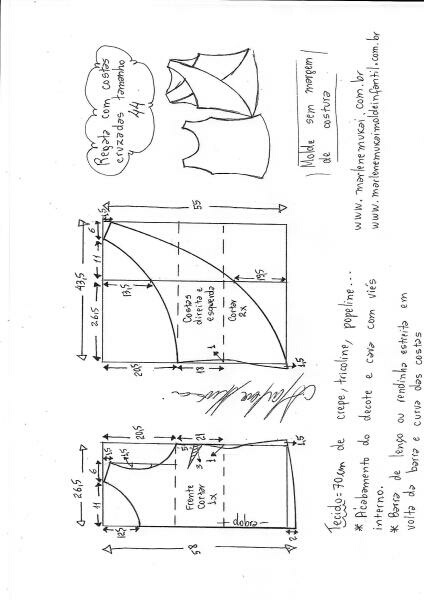 Regata com costas
cruzadas tamanho
44
Molde sem margem
de costura
www.marlenemukai.com.br
www.marlenemukaimoldeinfantil.com.br
55
1,5
6
11
43,5
26,5
13,5
19,5
Costas
direita e
esquerda
Cortar
2x
1
20,5
18
1,5
20,5
21
1,5
6
1,5
11
26,5
12,5
5
3
1
1,5
Frente
Cortar
1x
dobra
2
58
Tecido=70cm de crepe, tricoline, popeline...
* Acabamento do decote e cava com viés
interno.
* Barra de lenço ou rendinha estreita em
volta da barra e curva das costas